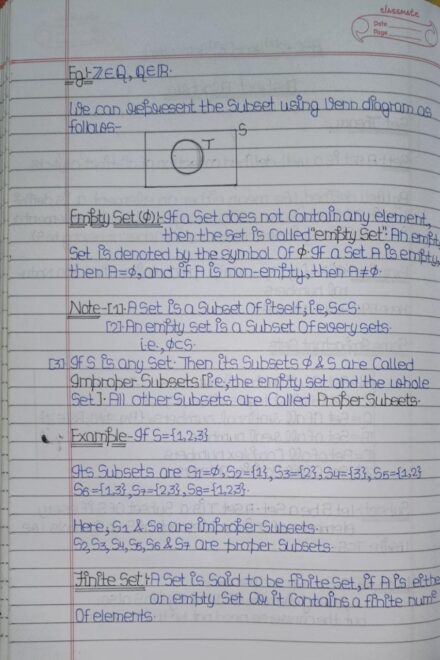 classmate
Date
Page
Eg:- Z∈Q, Q∈R.
We can represent the Subset using Venn diagram as
follows-
S
T
Empty Set (ϕ):- If a Set does not Contain any element,
then the Set is Called "empty Set". An empty
Set is denoted by the symbol Of ϕ. If a Set A is empty,
then A=ϕ, and if A is non-empty, then A≠ϕ.
Note-[1]-A Set is a Subset Of itself, i.e, S⊂S.
[2]-An empty set is a Subset Of every sets.
i.e., ϕ⊂S.
[3] If S is any Set. Then its Subsets ϕ & S are Called
Improper Subsets [i.e, the empty set and the whole
Set]. All other Subsets are Called Proper Subsets.
Example- If S={1,2,3}
Its Subsets are S1=ϕ, S2={1}, S3={2}, S4={3}, S5={1,2}
S6={1,3}, S7={2,3}, S8={1,2,3}.
Here, S1 & S8 are improper Subsets.
S2, S3, S4, S5, S6 & S7 are proper Subsets.
Finite Set:- A Set is Said to be finite Set, if A is eithe
an empty Set Or it Contains a finite num
Of elements.